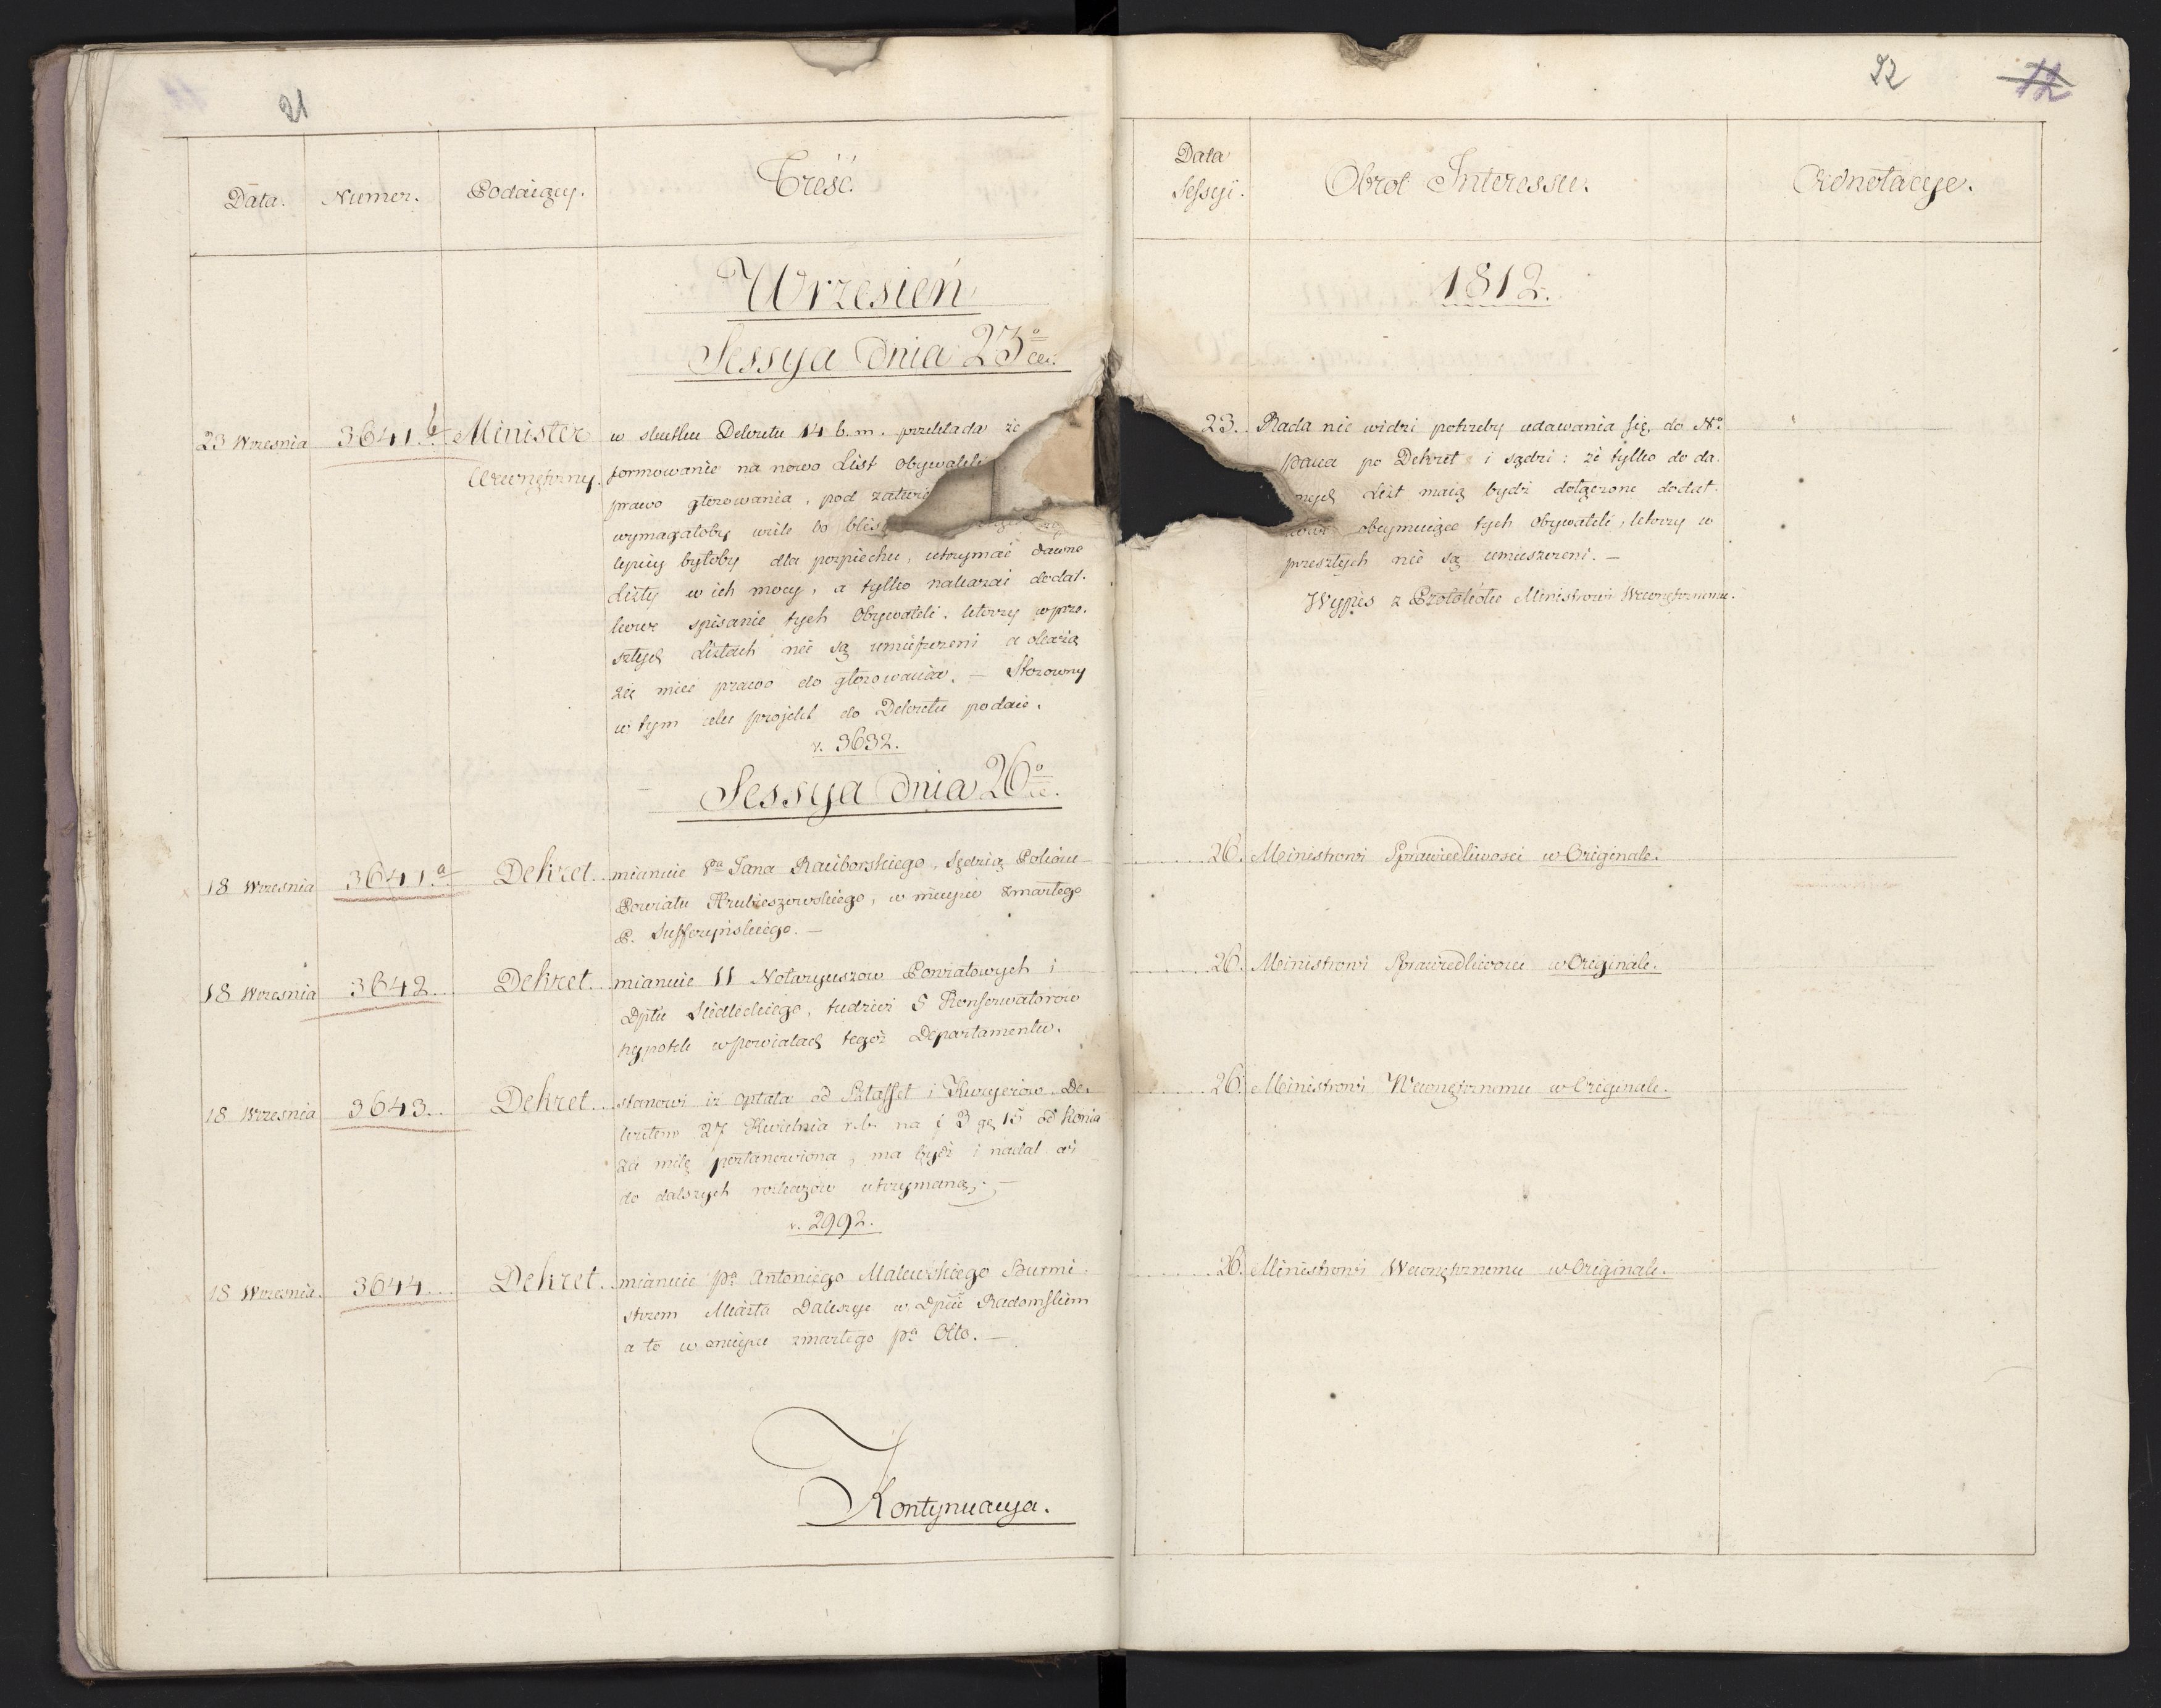 21
Data.
Numer.
Podaiący.
Treść.
Wrzesień
Sessya dnia 23º
23 Wrzesnia
3641.b
Minister
Wewnętrzny.
w skutku Dekretu 14 b. m. przekłada że
formowanie na nowo List Obywateli
prawo głosowania, pod zatwie
wymagałoby wiele
lepiey byłoby dla pospiechu, utrzymać dawne
Listy w ich mocy, a tylko nakazać dodat-
kowe spisanie tych Obywateli, ktorzy w prze-
szłych Listach nie są umieszczeni a okażą
się mieć prawo do głosowania. — Stosowny
w tym celu projekt do Dekretu podaie.
v. 3632.
Sessya dnia 26º
18 Wrzesnia
3641.a
Dekret
mianuie Pna Jana Raciborskiego, Sędzią Pokoiu
Powiatu Hrubieszowskiego, w mieysce zmarłego
P. Sufferzyńskiego. —
18 Wrzesnia
3642
Dekret
mianuie 11 Notaryuszow Powiatowych i
Dptu Siedleckiego, tudzież 5 Konserwatorow
hypotek w powiatach tegoż Departamentu.
18 Wrzesnia
3643
Dekret
stanowi iż opłata od Sztaffet i Kuryerow De-
kretem 27 Kwietnia r. b. na f 3 gr 15 od Konia
za milę postanowiona, ma bydź i nadal aż
do dalszych rozkazow utrzymaną. —
v. 2992.
18 Wrzesnia.
3644
Dekret
mianuie pa Antoniego Malewskiego Burmi-
strzem Miasta Daleszyc w Dpcie Radomskim
a to w mieysce zmarłego pa Otto. —
Kontynuacya.
22
12
Data
Sessyi.
Obrot Interessu.
Adnotacye.
1812.
23.
Rada nie widzi potrzeby udawania się do No
Pana po Dekret i sądzi: że tylko do da-
wnych List maią bydź dołączone dodat-
kowe obeymuiące tych Obywateli, ktorzy w
przeszłych nie są umieszczeni. —
Wypis z Protokołu Ministrowi Wewnętrznemu.
26.
Ministrowi Sprawiedliwosci w Originale.
26.
Ministrowi Sprawiedliwosci w Originale.
26.
Ministrowi Wewnętrznemu w Originale.
26.
Ministrowi Wewnętrznemu w Originale.